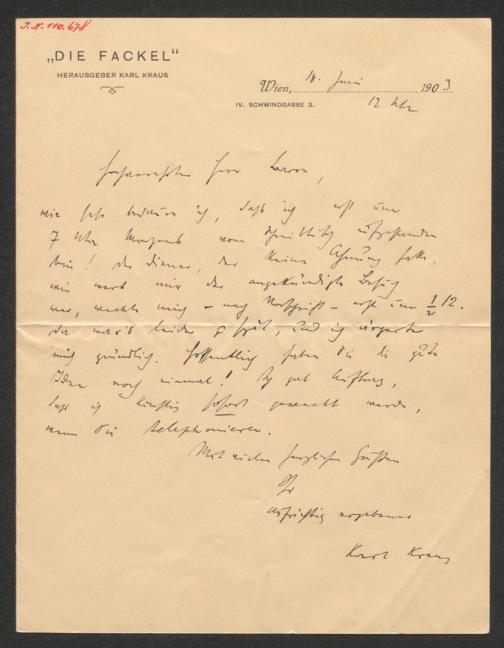 J.N. 110.678
„DIE FACKEL“
HERAUSGEBER KARL KRAUS
Wien, 18. Juni 1903
IV. SCHWINDGASSE 3. 12 Uhr
Hochverehrter Herr Baron,
wie sehr bedaure ich, daß ich erst um
7 Uhr Morgens vom Schreibtisch aufgestanden
bin! Der Diener, der keine Ahnung hatte,
wie wert mir der angekündigte Besuch
war, weckte mich – nach Vorschrift – erst um ½ 12.
Da war's leider zu spät, und ich ärgerte
mich gründlich. Hoffentlich haben Sie die gute
Idee noch einmal! Ich gab Auftrag,
daß ich künftig sofort geweckt werde,
wenn Sie telephonieren.
Mit vielen herzlichen Grüßen
Ihr
aufrichtig ergebener
Karl Kraus